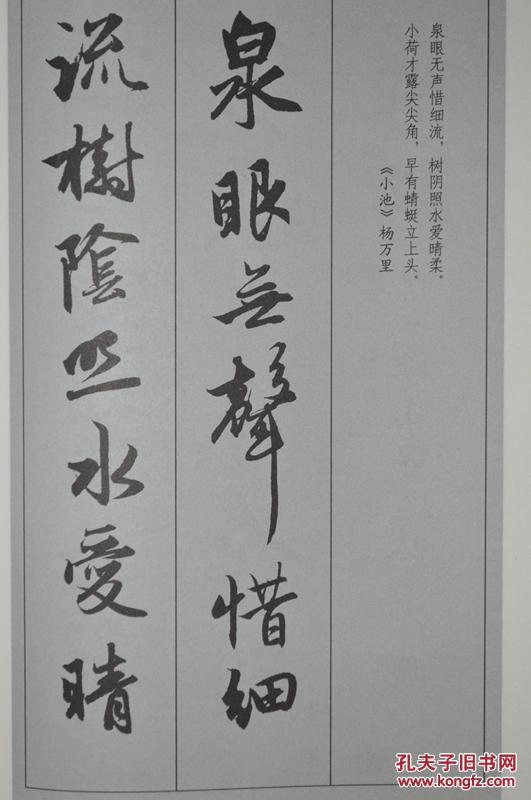 泉眼无声惜细流，树阴照水爱晴柔。
小荷才露尖尖角，早有蜻蜓立上头。
《小池》杨万里
泉眼無聲惜细
流樹陰照水愛晴
孔夫子旧书网
www.kongfz.com